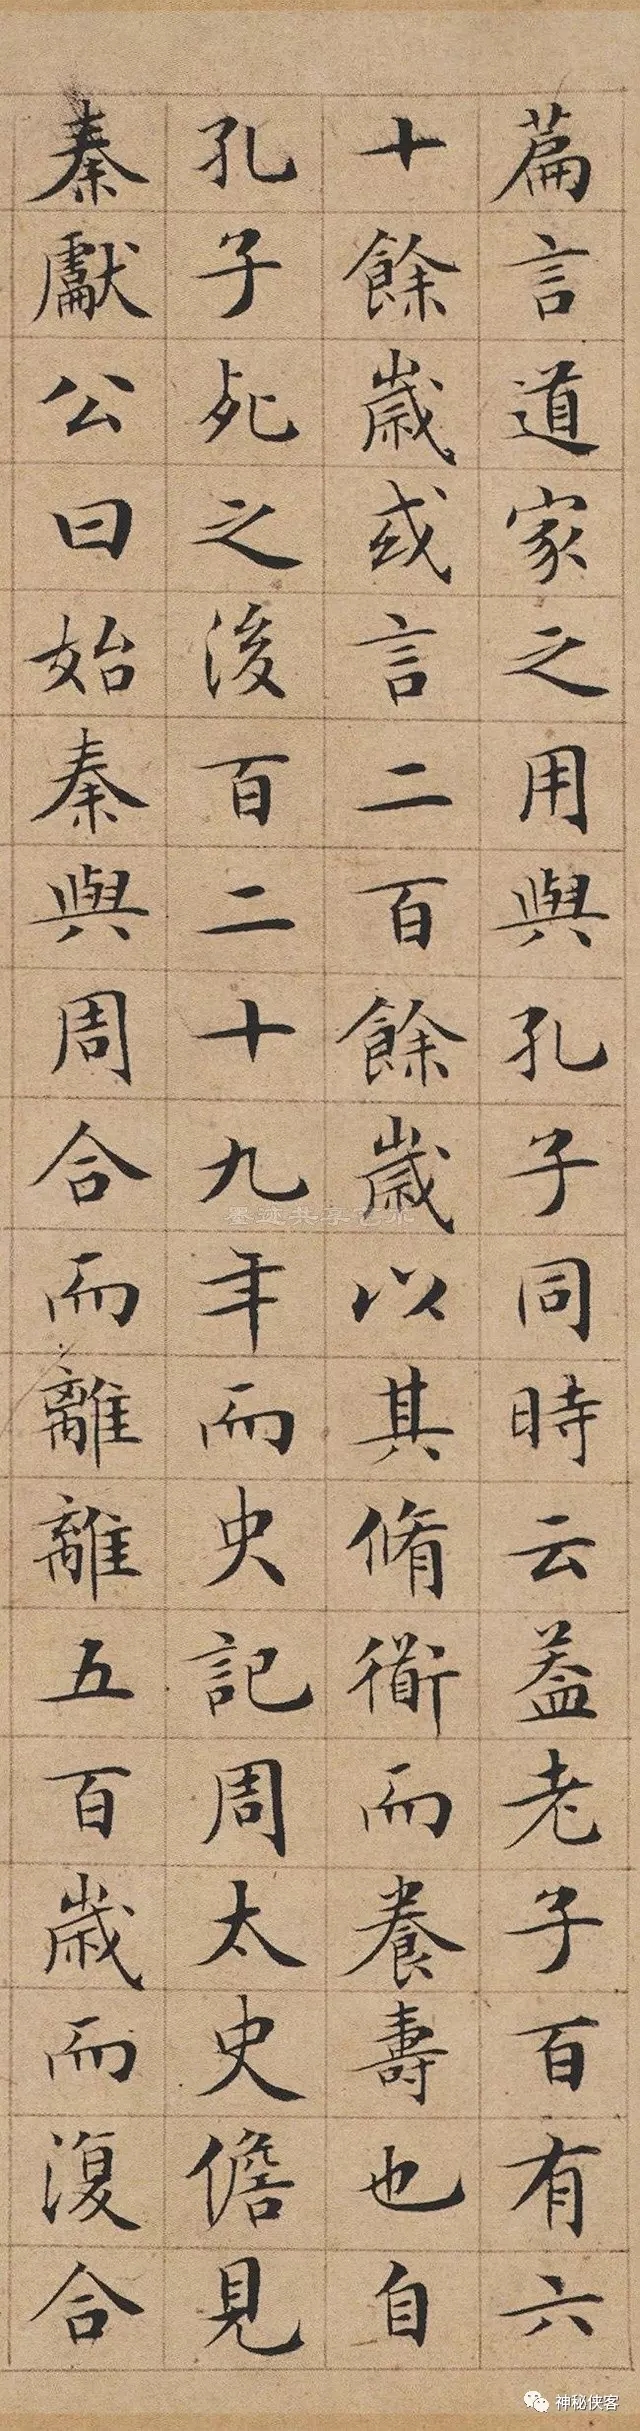 篇言道家之用與孔子同時云葢老子百有六
十餘歲或言二百餘歲以其脩衜而養壽也自
孔子死之後百二十九年而史記周太史儋見
秦獻公曰始秦與周合而離離五百歲而復合
墨迹共享艺术
神秘侠客